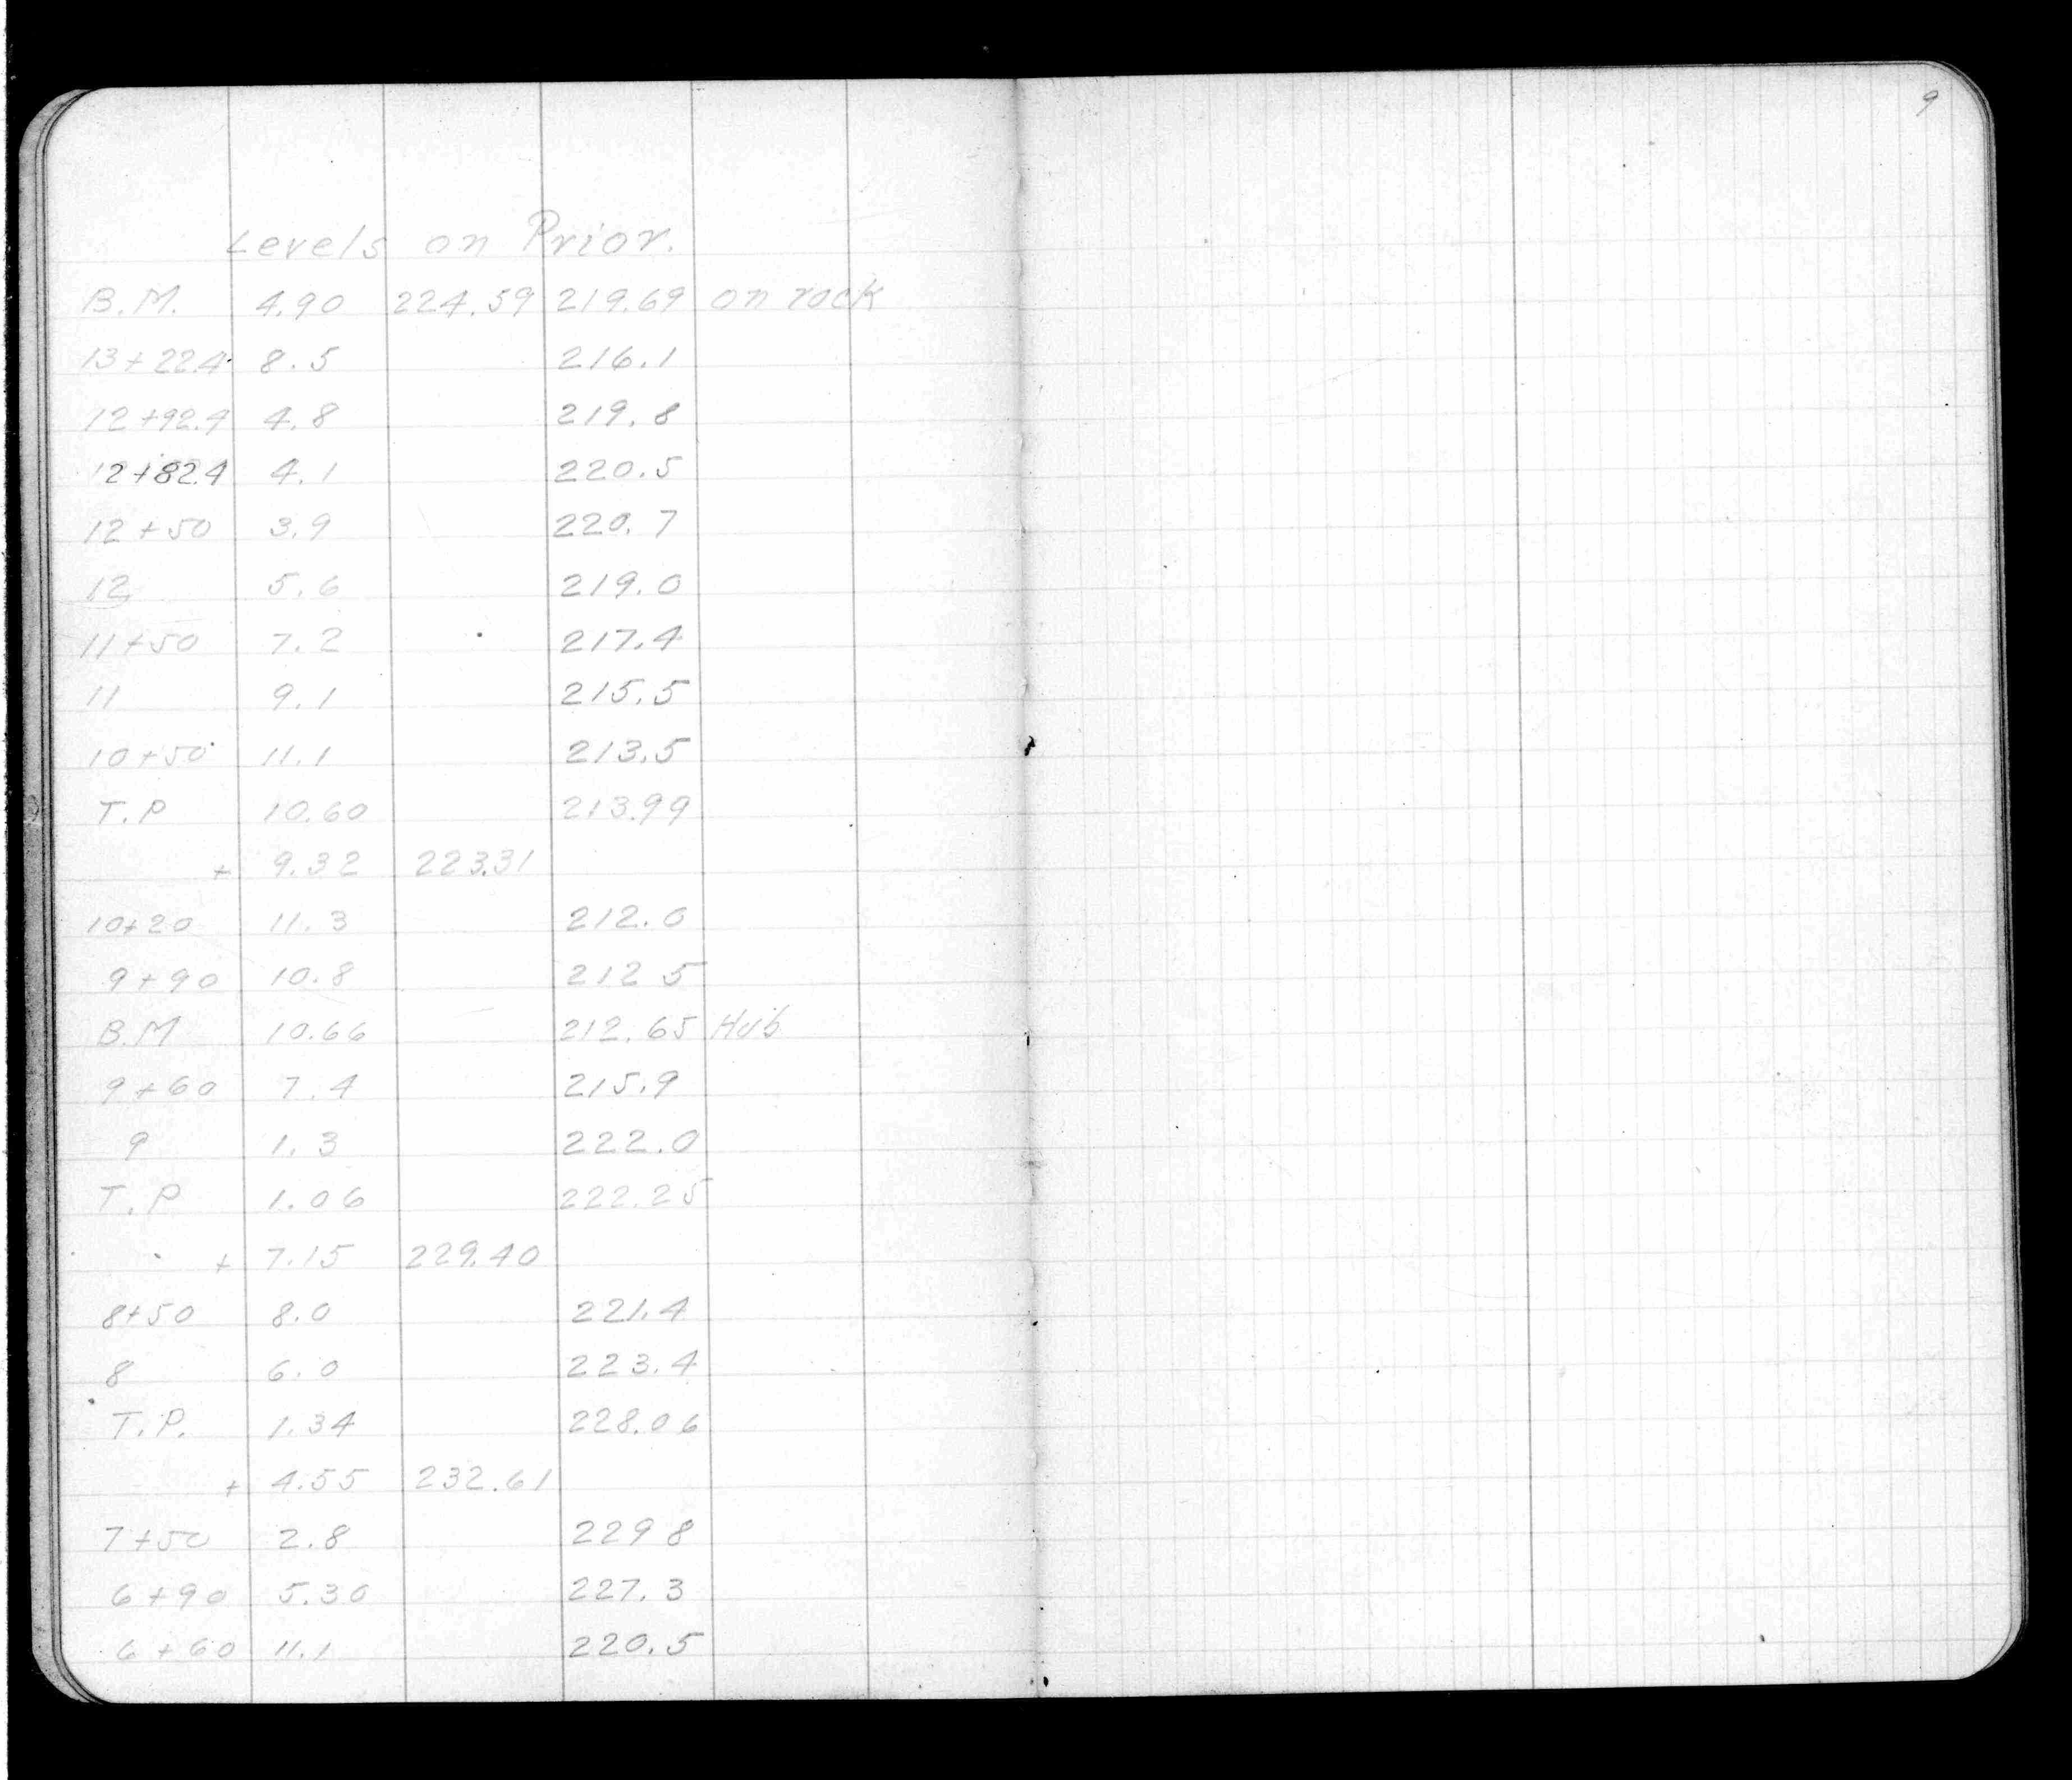 9
Levels on Prior.
B.M. 4.90 224.59 219.69 on rock
13+22.4 8.5 216.1
12+92.4 4.8 219.8
12+82.4 4.1 220.5
12+50 3.9 220.7
12 5.6 219.0
11+50 7.2 217.4
11 9.1 215.5
10+50 11.1 213.5
T.P 10.60 213.99
+ 9.32 223.31
10+20 11.3 212.0
9+90 10.8 212 5
B.M 10.66 212.65 Hub
9+60 7.4 215.9
9 1.3 222.0
T.P 1.06 222.25
+ 7.15 229.40
8+50 8.0 221.4
8 6.0 223.4
T.P. 1.34 228.06
+ 4.55 232.61
7+50 2.8 229 8
6+90 5.30 227.3
6+60 11.1 220.5